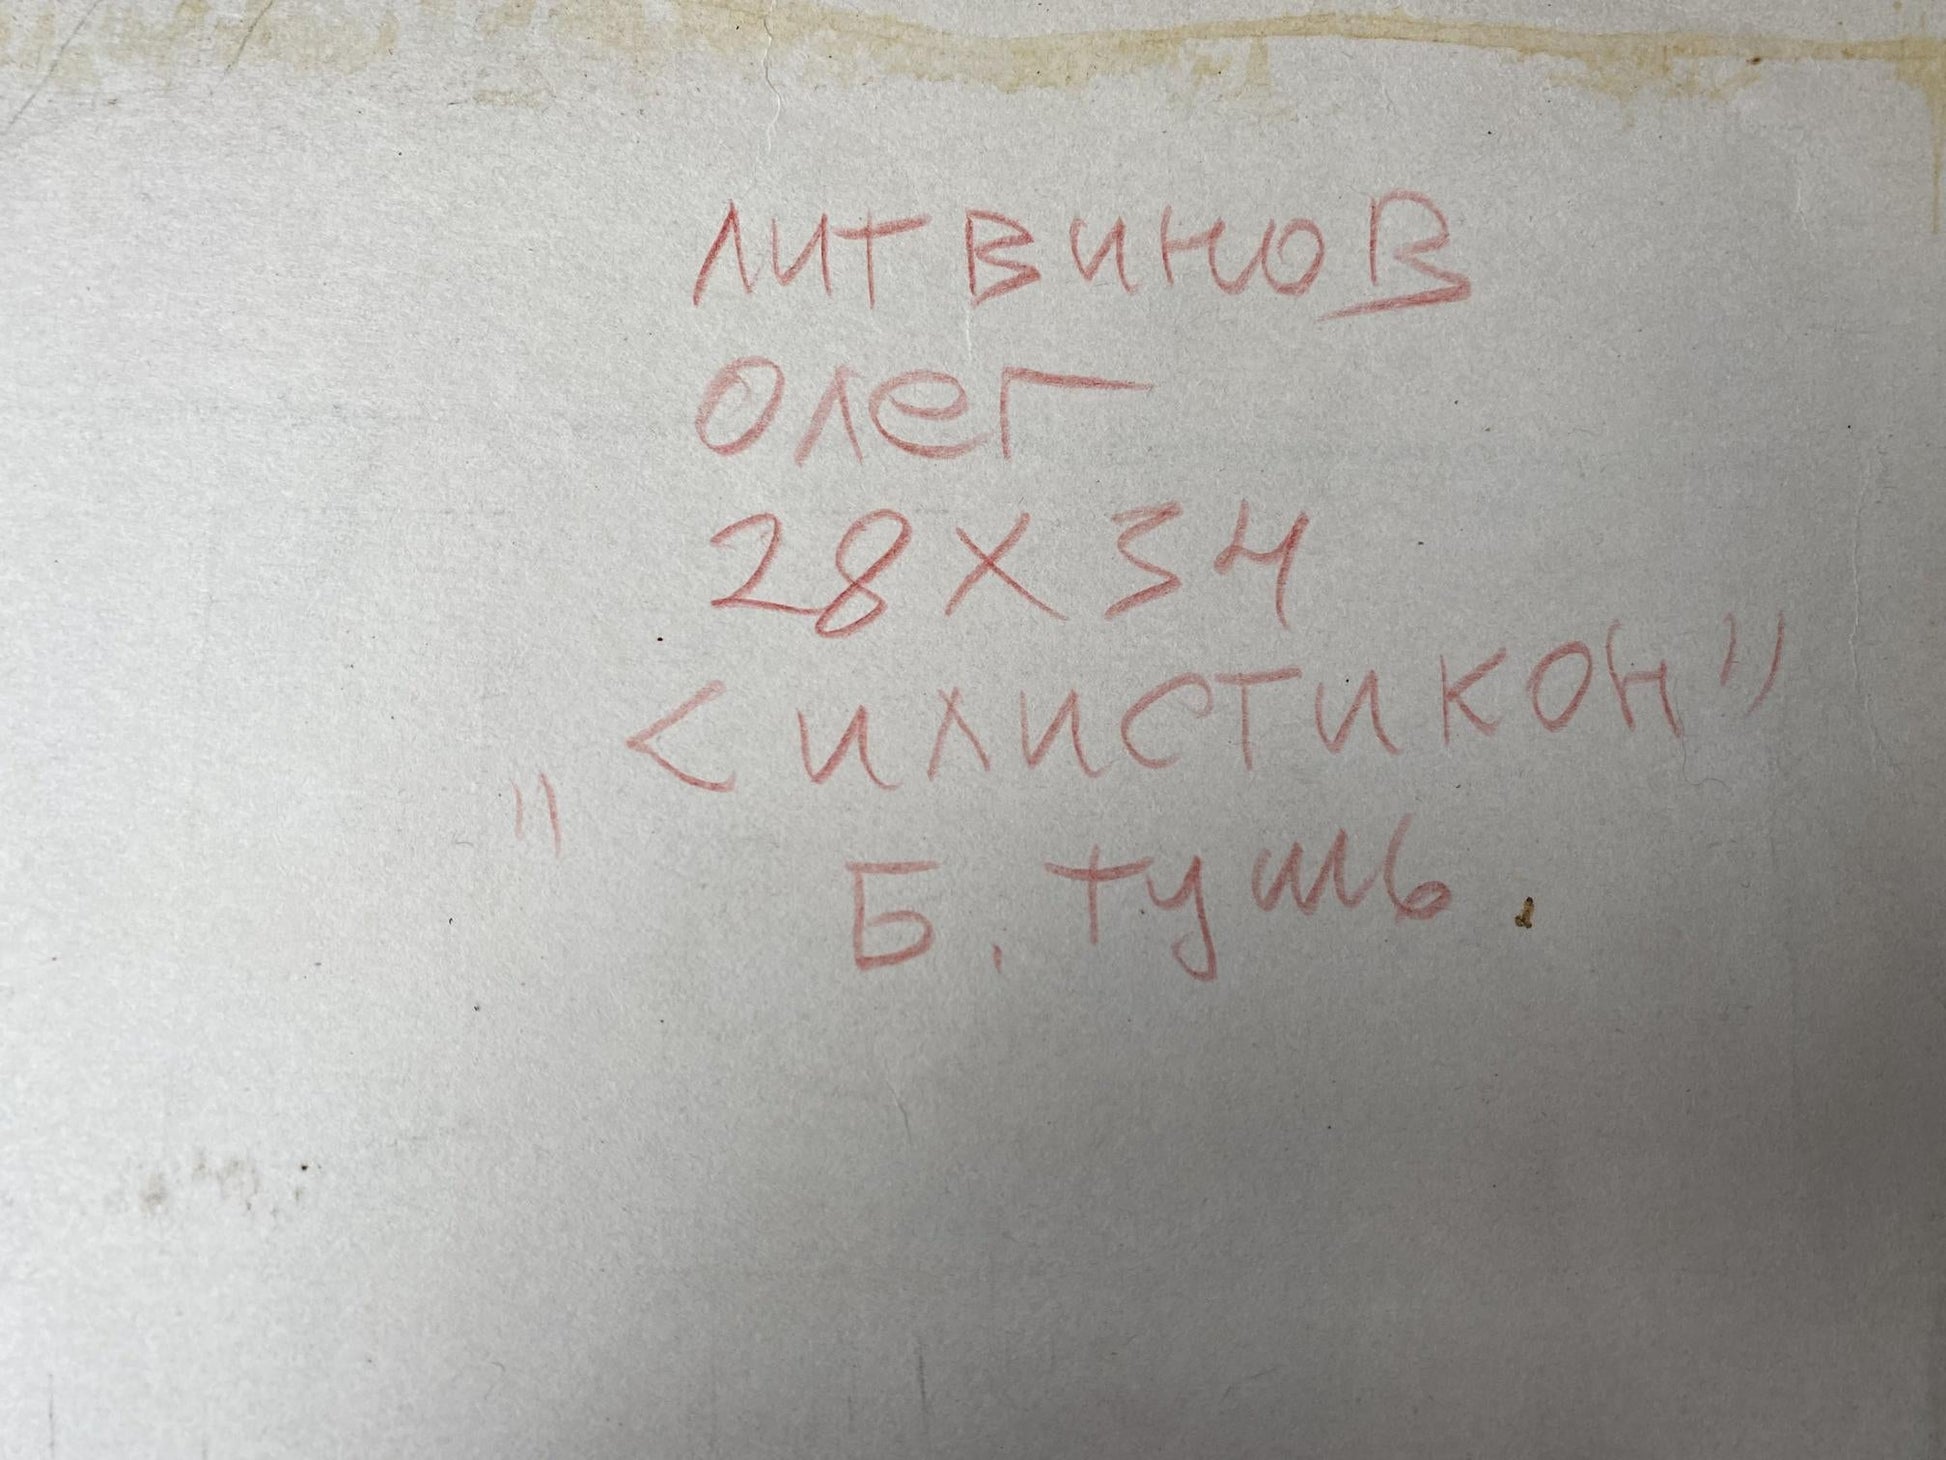 ЛИТВИНОВ
ОЛЕГ
28 X 34
"СИЛИСТИКОН"
Б. ТУШЬ.